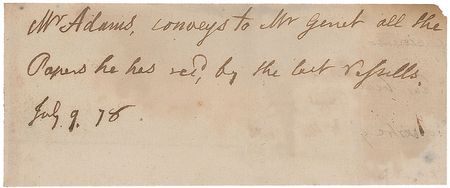 Mr Adams, conveys to Mr Genet all the
Papers he has recd, by the last Vessells.
July 9. 78.